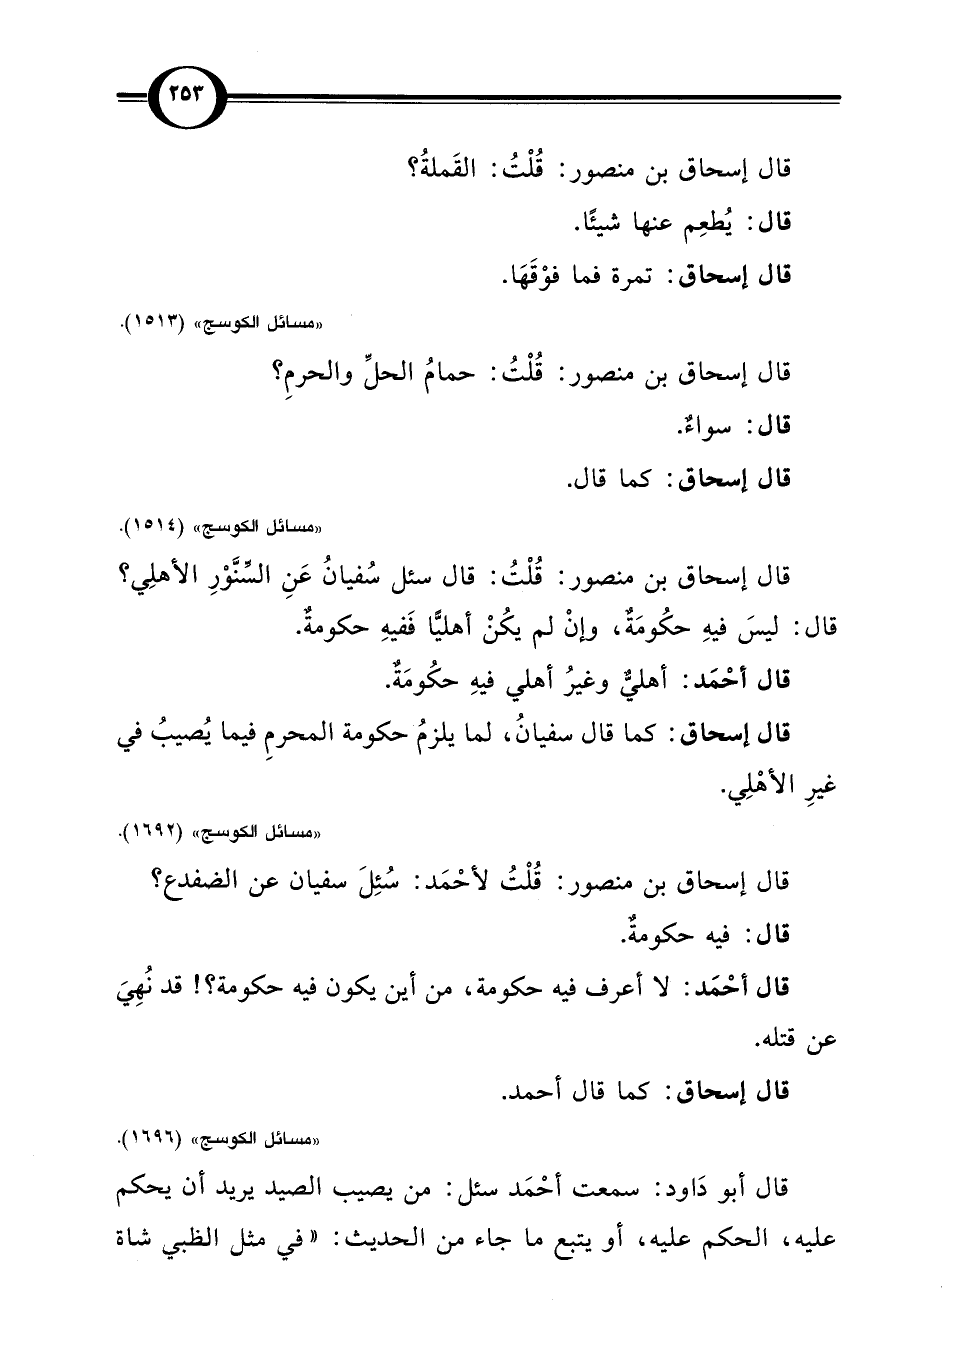 ٢٥٣
قال إسحاق بن منصور: قُلْتُ: القَملةُ؟
قال: يُطعِم عنها شيئًا.
قال إسحاق: تمرة فما فوْقَهَا.
«مسائل الكوسج» (١٥١٣).
قال إسحاق بن منصور: قُلْتُ: حمامُ الحلِّ والحرمِ؟
قال: سواءٌ.
قال إسحاق: كما قال.
«مسائل الكوسج» (١٥١٤).
قال إسحاق بن منصور: قُلْتُ: قال سئل سُفيانُ عَنِ السِّنَّوْرِ الأهلِي؟
قال: ليسَ فيهِ حكُومَةٌ، وإنْ لم يكُنْ أهليًّا فَفيهِ حكومةٌ.
قال أحْمَد: أهليٌّ وغيرُ أهلي فيهِ حكُومَةٌ.
قال إسحاق: كما قال سفيانُ، لما يلزمُ حكومة المحرمِ فيما يُصيبُ في
غيرِ الأهْلِي.
«مسائل الكوسج» (١٦٩٢).
قال إسحاق بن منصور: قُلْتُ لأحْمَد: سُئِلَ سفيان عن الضفدع؟
قال: فيه حكومةٌ.
قال أحْمَد: لا أعرف فيه حكومة، من أين يكون فيه حكومة؟! قد نُهِيَ
عن قتله.
قال إسحاق: كما قال أحمد.
«مسائل الكوسج» (١٦٩٦).
قال أبو دَاود: سمعت أحْمَد سئل: من يصيب الصيد يريد أن يحكم
عليه، الحكم عليه، أو يتبع ما جاء من الحديث: «في مثل الظبي شاة